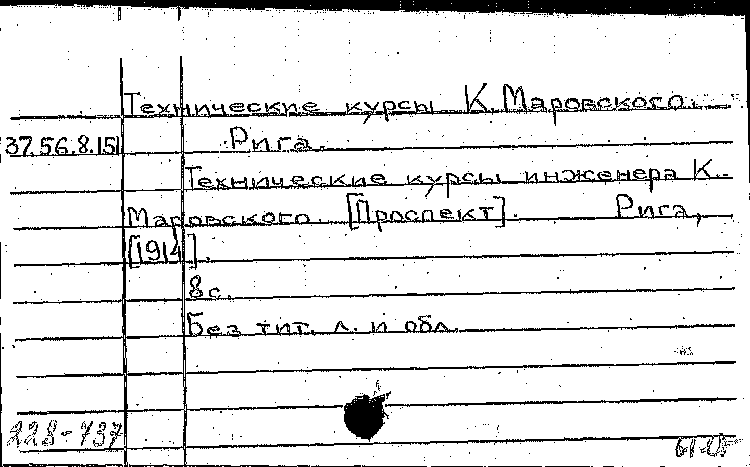 Технические курсы К. Маровского.
37.56.8.151 Рига.
Технические курсы инженера К.
Маровского. [Проспект]. Рига,
[1914].
8 с.
Без тит. л. и обл.
228-737